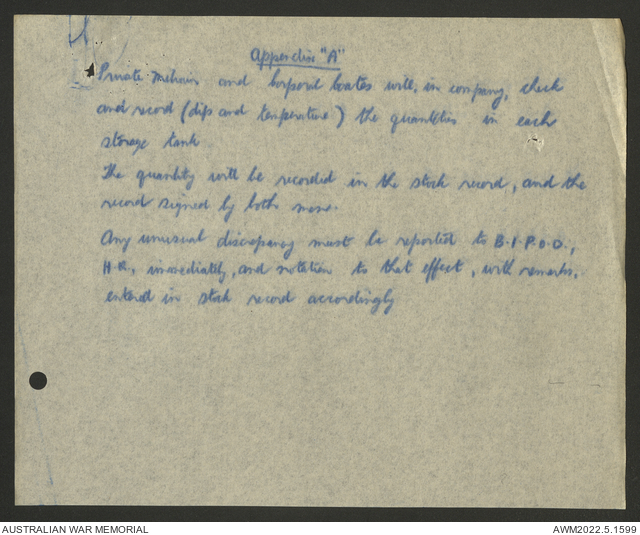 Appendix "A"
Private and Corporal Coates will, in company, check
and record (dips and temperature) the quantities in each
storage tank
The quantity will be recorded in the stock record, and the
record signed by both men.
Any unusual discrepancy must be reported to B.I.P.O.D.,
H.Q., immediately, and notation to that effect, with remarks,
entered in stock record accordingly
AUSTRALIAN WAR MEMORIAL
AWM2022.5.1599